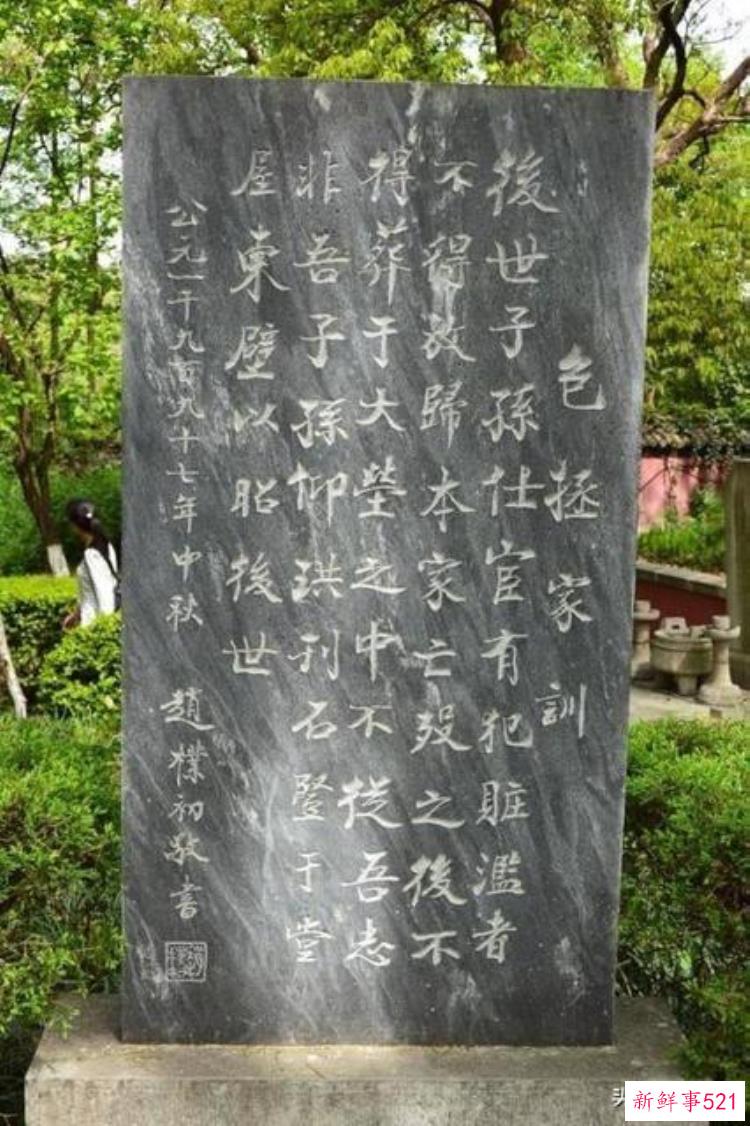 包拯家訓
後世子孫仕宦有犯賍濫者
不得放歸本家亡殁之後不
得葬于大塋之中不從吾志
非吾子孫仰珙刊石豎于堂
屋東壁以昭後世
公元一千九百九十七年中秋 趙樸初敬書
新鲜事521